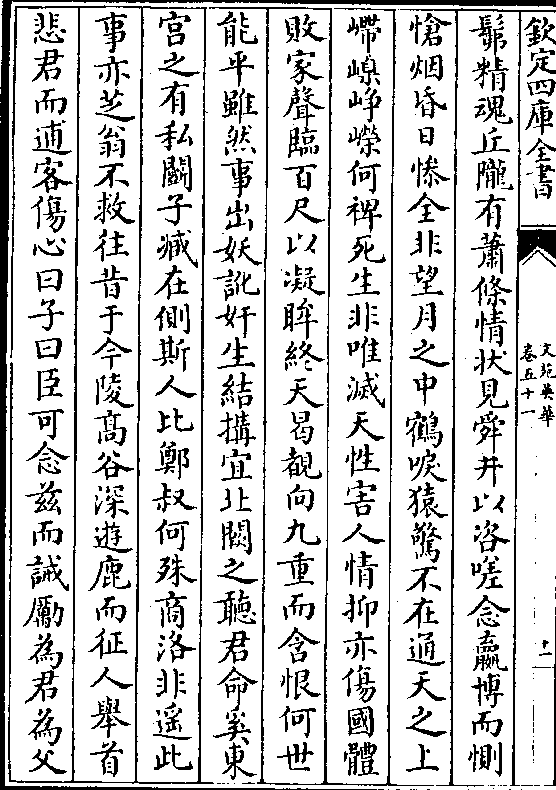 欽定四庫全書
文苑英華
卷五十一
十二
髴精魂丘隴有蕭條情狀見舜井以咨嗟念嬴博而惻
愴烟昏日慘全非望月之中鶴唳猿驚不在通天之上
嵽嵲崢嶸何裨死生非唯滅天性害人情抑亦傷國體
敗家聲臨百尺以凝眸終天曷覩向九重而含恨何世
能平雖然事出妖訛奸生結搆宜北闕之聽君命奚東
宫之有私鬭子臧在側斯人比鄭叔何殊商洛非遥此
事亦芝翁不救往昔于今陵髙谷深遊鹿而征人舉首
悲君而逋客傷心曰子曰臣可念兹而誡勵為君為父